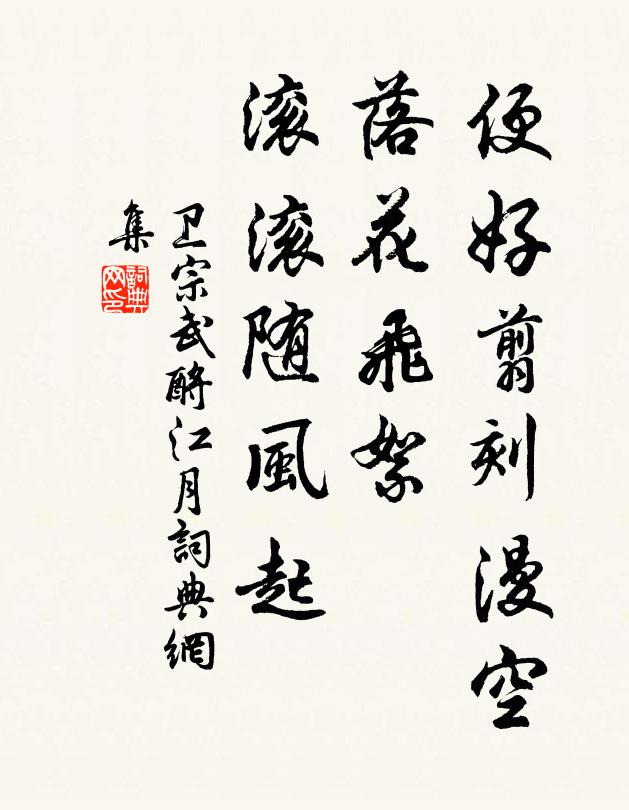 便好剪刻漫空
落花飛絮
滚滚随風起
卫宗武酹江月詞典網
集
詞典网印